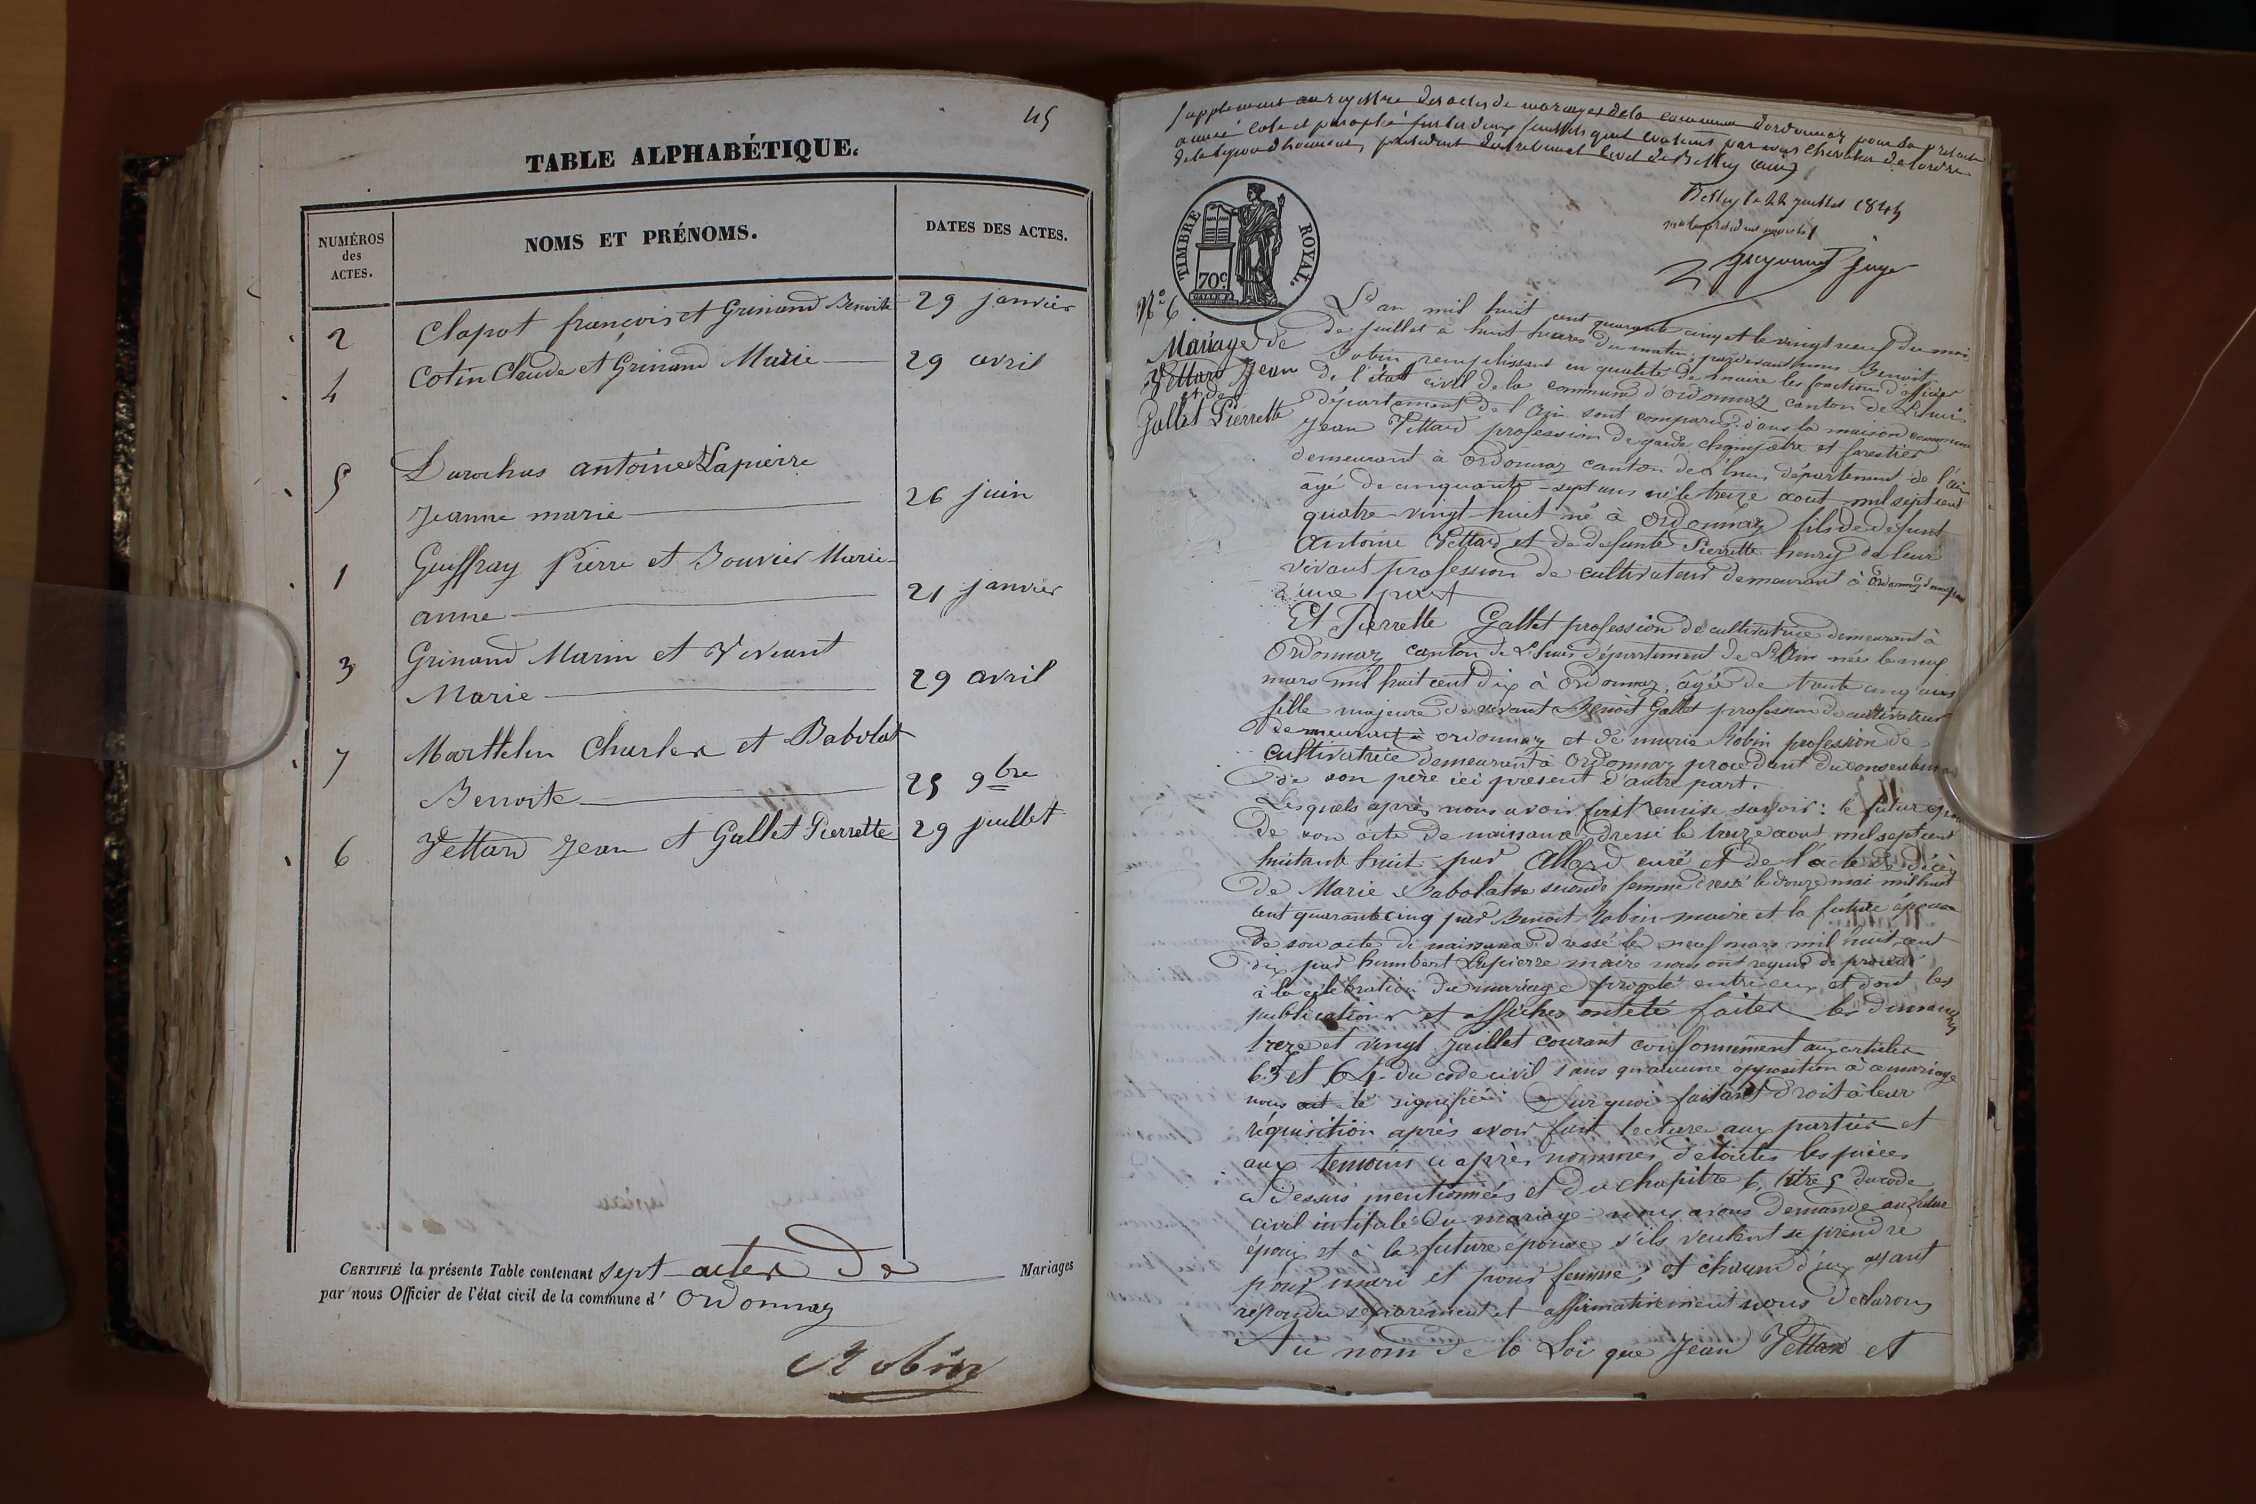 45
TABLE ALPHABÉTIQUE.
NUMÉROS
des
ACTES.
NOMS ET PRÉNOMS.
DATES DES ACTES.
2 Clapot françois et Grinand Benoite 29 janvier
4 Cotin Claude et Grinand Marie 29 avril
5 Durochus antoine et Lapierre
Jeanne marie 26 juin
1 Guiffray Pierre et Bouvier Marie
anne 21 janvier
3 Grinand Marin et Vivant
Marie 29 avril
7 Marthelin Charles et Babolat
Benoite 25 9bre
6 Vettard Jean et Gallet Pierrette 29 juillet
CERTIFIÉ la présente Table contenant sept actes de Mariages
par nous Officier de l'état civil de la commune d' Ordonnaz
Robin
Supplement au registre des actes de mariages de la commune d'ordonnaz pour la présente
année coté et paraphé sur les deux feuillets qu'il contient par nous chevalier de l'ordre
de la légion d'honneur, président du tribunal civil de Belley (ain)
Belley le 22 juillet 1845
Guyonnet juge
TIMBRE ROYAL.
70c
N° 6
Mariage de
Vettard Jean
et de
Gallet Pierrette
L'an mil huit cent quarante cinq et le vingt neuf du mois
de juillet à huit heures du matin, pardevant nous Benoit
Robin remplissant en qualité de maire les fonctions d'officier
de l'état civil de la commune d'ordonnaz canton de Lhuis
département de l'Ain sont comparus dans la maison commune
Jean Vettard profession de garde champêtre et forestier
demeurant à Ordonnaz canton de Lhuis département de l'ain
âgé de cinquante-sept ans né le treize aout mil sept cent
quatre-vingt-huit né à Ordonnaz fils de défunt
Antoine Vettard et de defunte Pierrette henry de leur
vivant profession de cultivateur demeurant à Ordonnaz
d'une part
Et Pierrette Gallet profession de cultivatrice demeurant à
Ordonnaz canton de Lhuis département de L'Ain née le neuf
mars mil huit cent dix à Ordonnaz, âgée de trente cinq ans
fille majeure de vivant Benoit Gallet profession de cultivateur
demeurant à ordonnaz et de marie Robin profession de
cultivatrice demeurant à Ordonnaz procédant du consentement
de son père ici présent d'autre part.
Lesquels après nous avoir fait remise savoir: le futur époux
de son acte de naissance dressé le treize aout mil sept cent
huitante huit par Allard curé et de l'acte de décès
de Marie Babolat sa seconde femme dressé le douze mai mil huit
cent quarante cinq par Benoit Robin maire et la future épouse
de son acte de naissance dressé le neuf mars mil huit cent
dix par humbert Lapierre maire nous ont requis de procéder
à la célébration du mariage projeté entre eux et dont les
publications et affiches ont été faites les dimanches
treze et vingt juillet courant conformément aux articles
63 et 64 du code civil sans qu'aucune opposition à ce mariage
nous ait été signifiée. Sur quoi faisant droit à leur
réquisition après avoir fait lecture aux parties et
aux temoins ci après nommés, de toutes les pièces
ci dessus mentionnées et du chapitre 6, titre 5 du code
civil intitulé du mariage nous avons demandé au futur
époux et à la future épouse s'ils veulent se prendre
pour mari et pour femme; et chacun d'eux ayant
répondu séparément et affirmativement nous declarons
Au nom de la Loi que Jean Vettard et